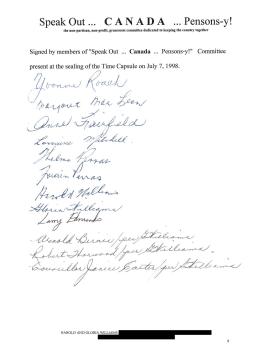 Speak Out ... CANADA ... Pensons-y!
the non-partisan, non-profit, grassroots committee dedicated to keeping the country together
Signed by members of "Speak Out ... Canada ... Pensons-y!" Committee
present at the sealing of the Time Capsule on July 7, 1998.
Yvonne Roach
Margaret Mac Lean
Anne Fairfield
Lorraine Mitchell
Thelma Porras
Porras
Harold Williams
Gloria Williams
Larry Edmunds
Arnold (per) GWilliams
Robert Harwood (per) GWilliams
Councillor Janice (per) GWilliams
HAROLD AND GLORIA WILLIAMS